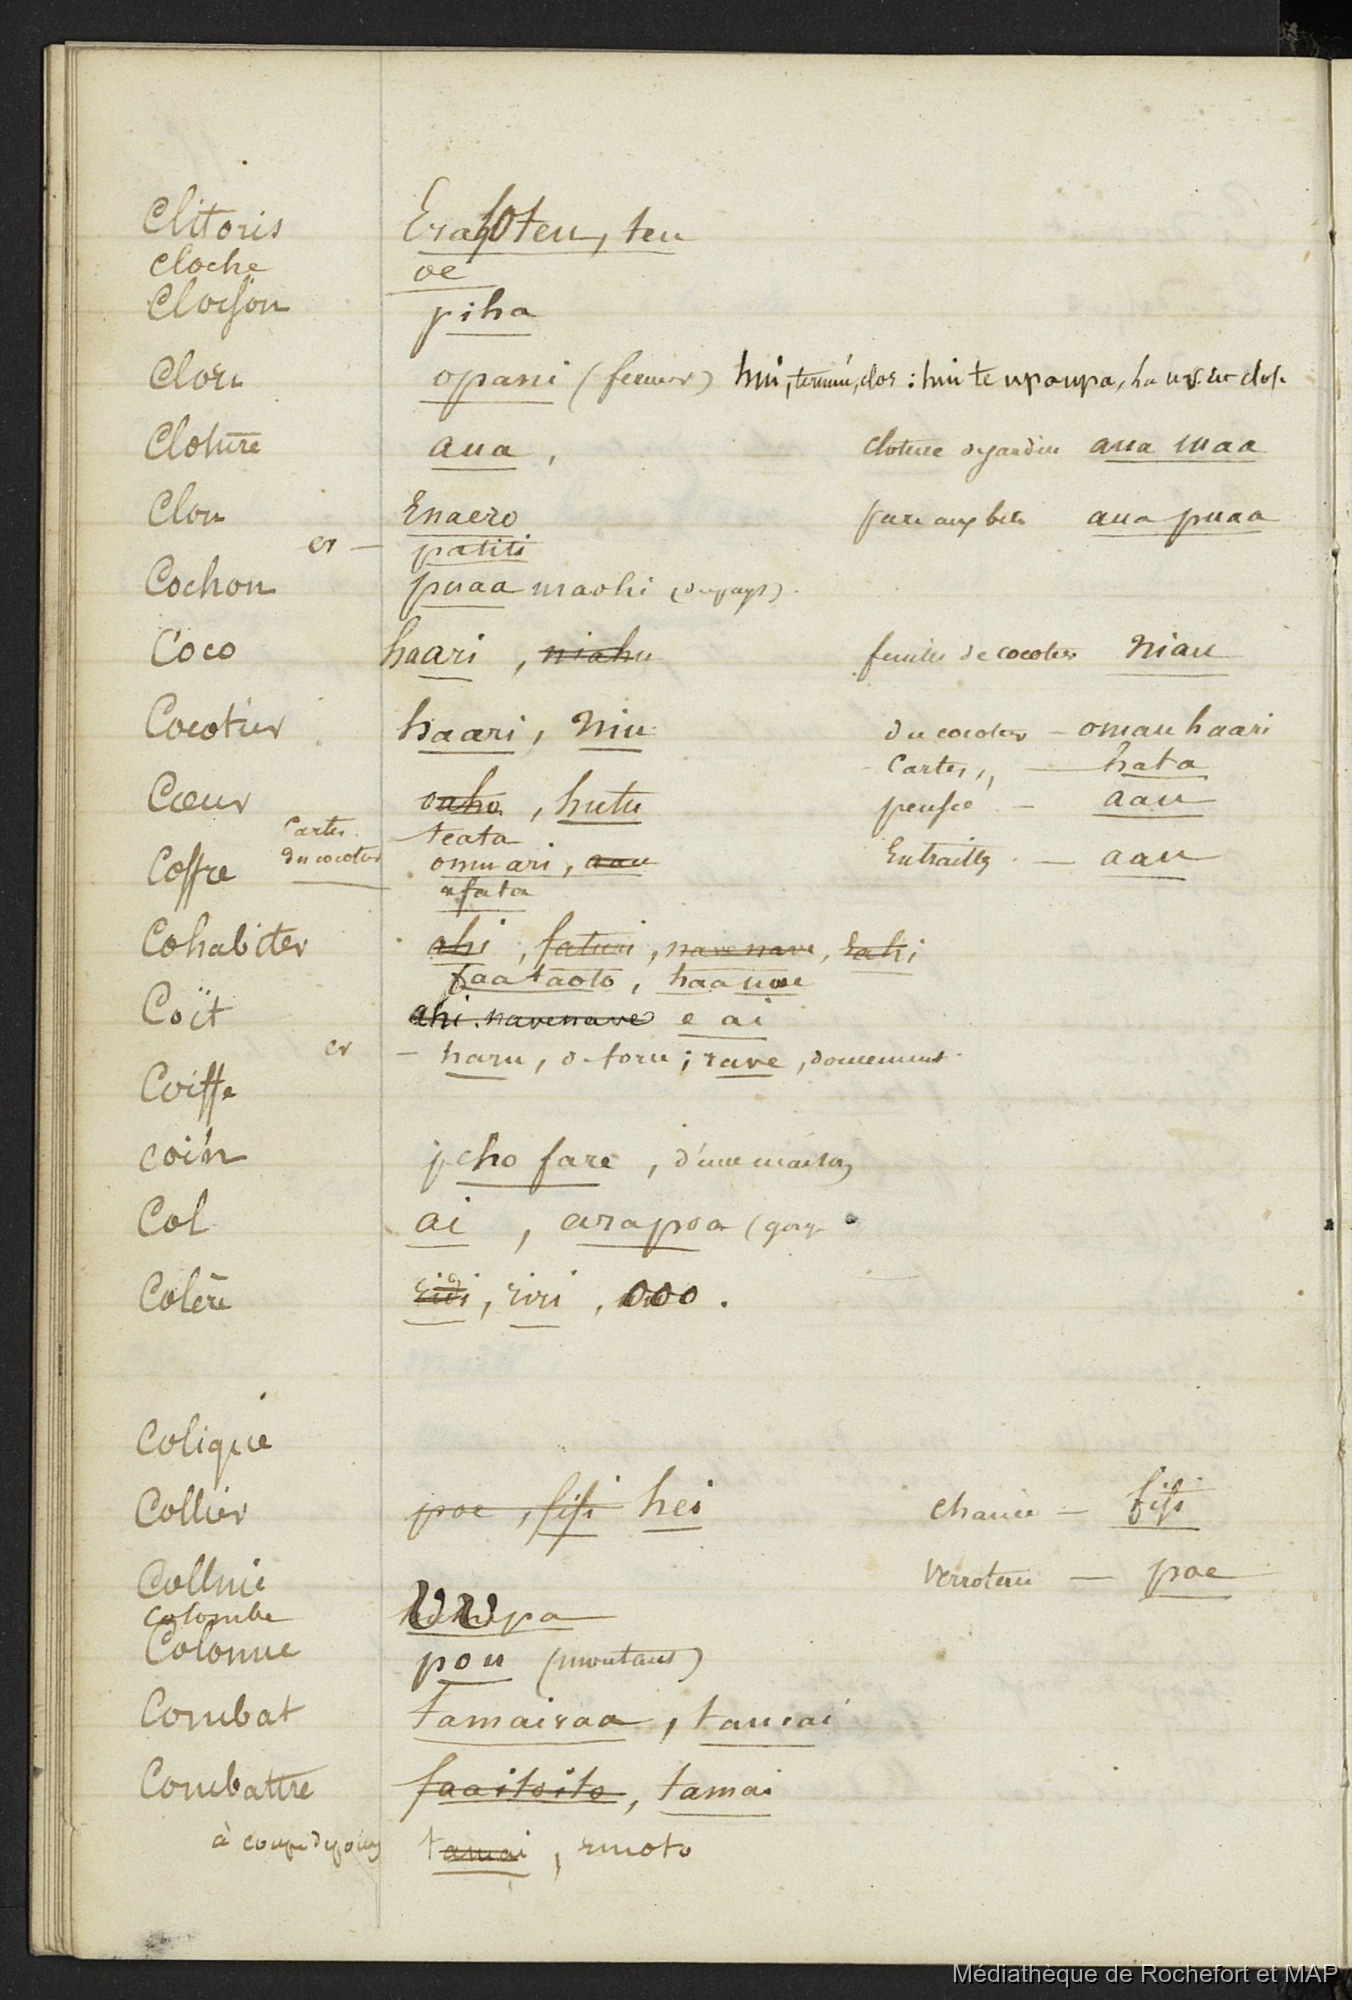 Clitoris teu
Cloche oe
Cloison piha
Clore opani (fermer)
Cloture aua, cloture de jardin aua maa
Clou Enaero parc aux bets aua puaa
er — patiti
Cochon puaa maohi (du pays)
Coco haari, niahu feuilles de cocotier Niau
Cocotier haari, Niu du cocotier — omau haari
Cartes,, — hata
Cœur hutu pensée — aau
Cartes. teata
Coffre du cocotier omuari, aau Entrailles — aau
afata
Cohabiter ahi, faturi, navenave, rahi
faataoto,
Coït ahi. navenave e ai
er — haru, de force; rave, doucement
Coiffe
coin peho fare, d'une maison
Col ai, arapoa (gorge
Colère riri, ooo.
Colique
Collier poe, fifi hei chaine — fifi
Colline Verroterie — poe
Colombe uupa
Colonne pou (montant)
Combat tamairaa, tamai
Combattre faaitoito, tamai
à coups de poing tamai, rmoto
Médiathèque de Rochefort et MAP